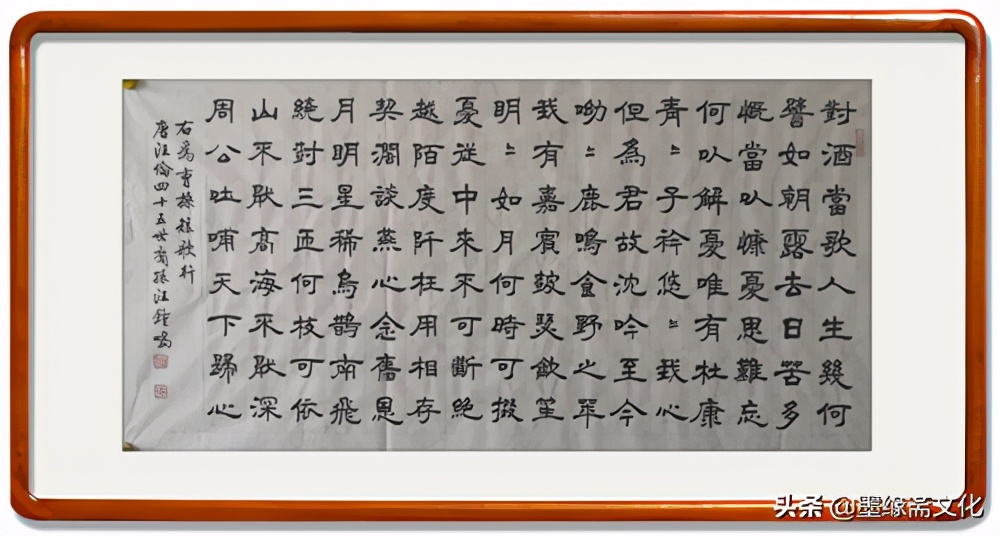 對酒當歌人生幾何
譬如朝露去日苦多
慨當㕥慷憂思難忘
何㕥解憂唯有杜康
青〻子衿悠〻我心
但為君故沈吟至今
呦〻鹿鳴食野之苹
我有嘉賓鼓瑟飲笙
明〻如月何時可掇
憂從中來不可斷絕
越陌度阡枉用相存
契闊談燕心念舊恩
月明星稀烏鵲南飛
繞對三匝何枝可依
山不厭高海不厭深
周公吐哺天下歸心
右為曹操短歌行
唐汪倫四十五世裔孫汪鍾鳴
头条 @墨缘斋文化